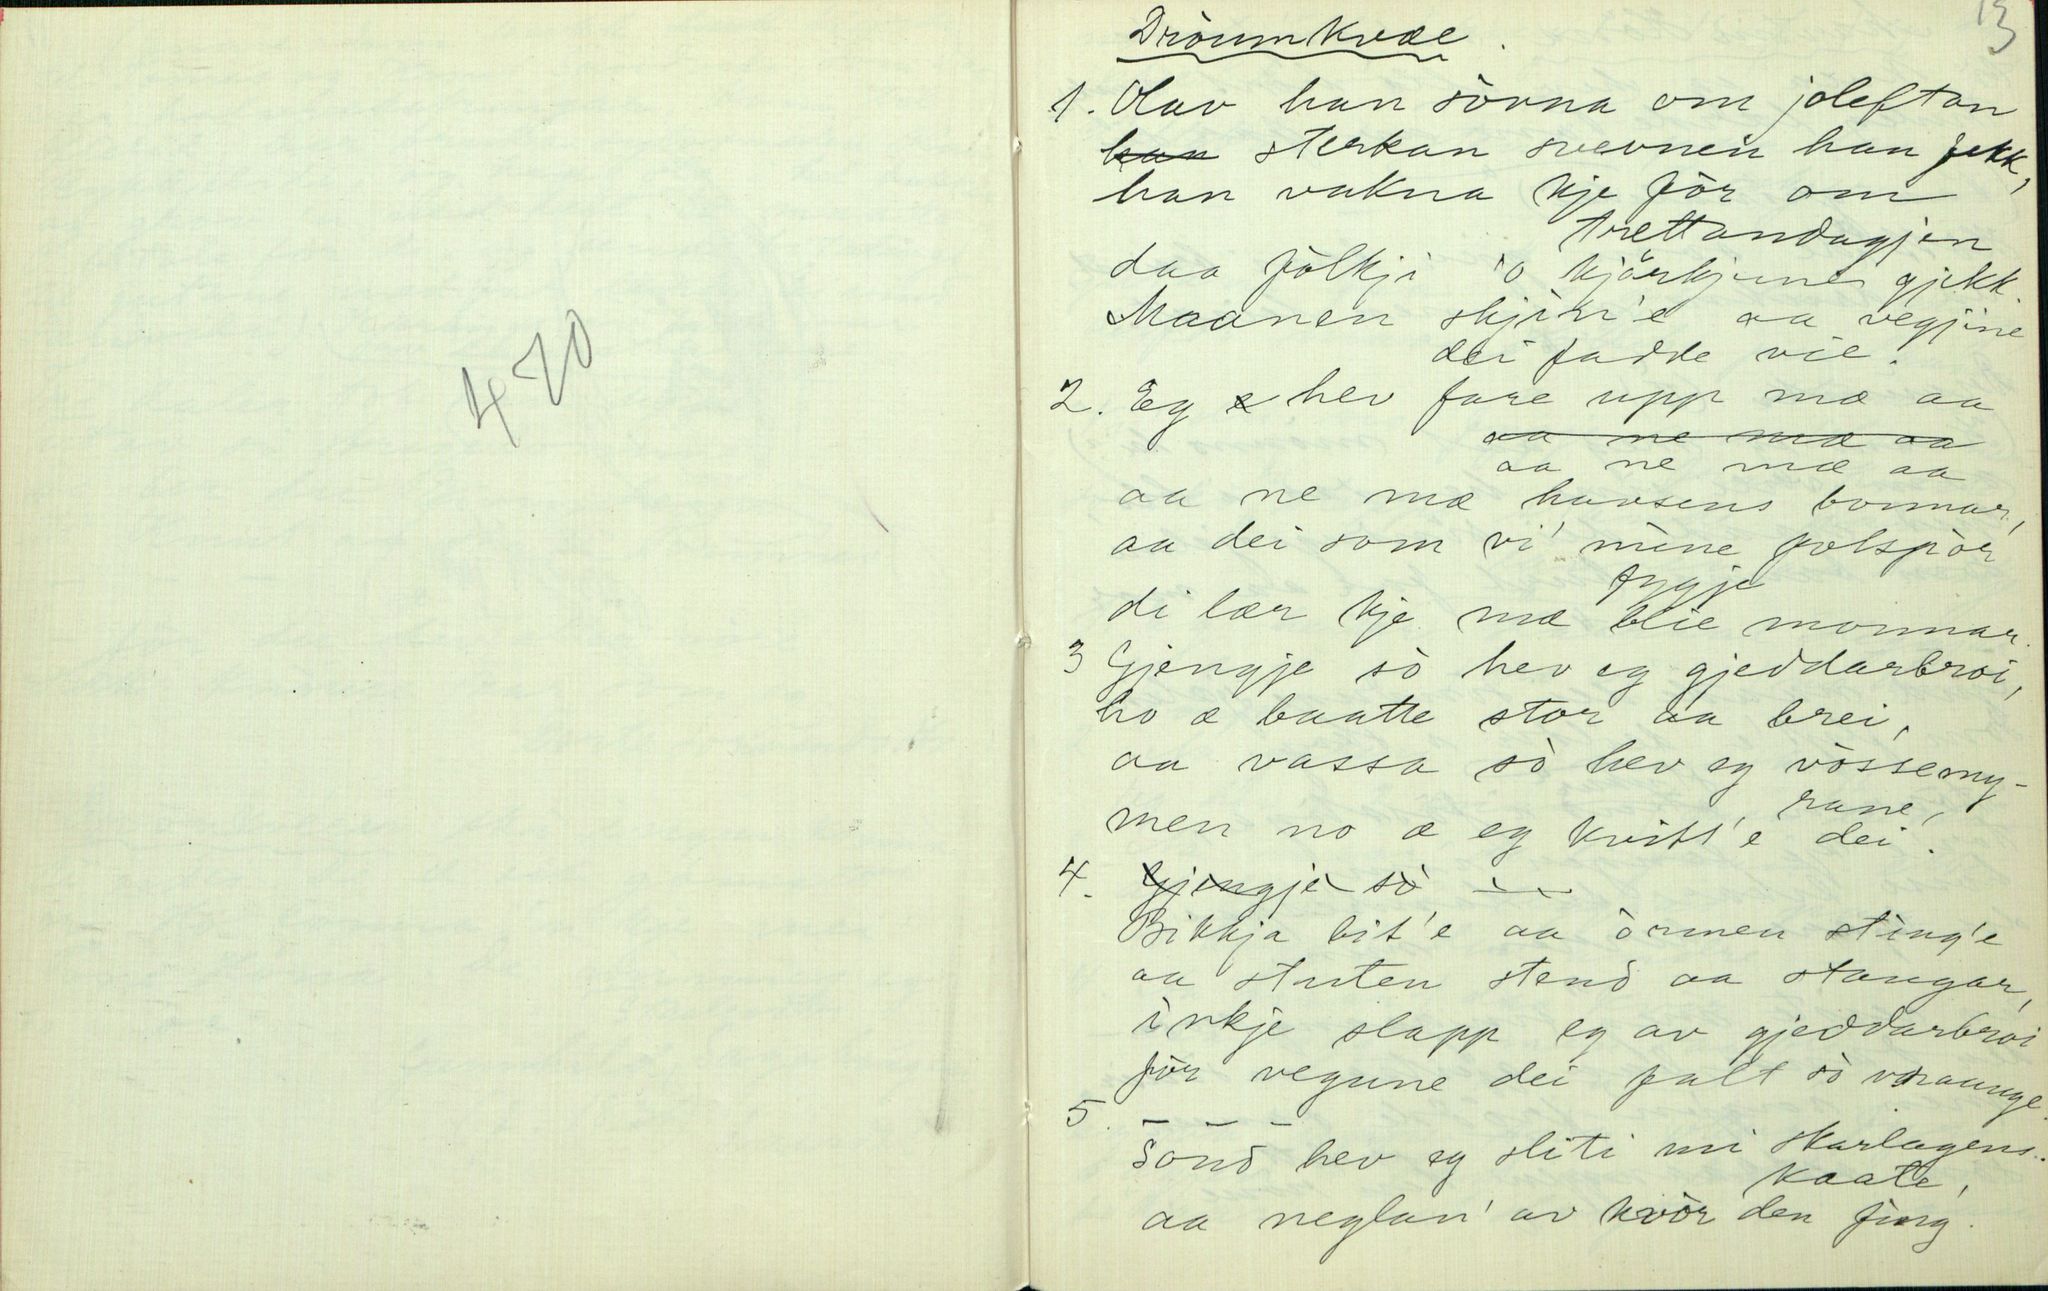 470
13
Dròumkvæe.
1. Olav han sòvna om joleftan
han sterkan svevnein han fekk,
han vakna kje fòr om
trettandagjen
daa fòlkji 'o kjörkjune gjekk.
Maanen skjin'e aa vegjine
dei fadde vie.
2. Eg e hev fare upp mæ aa
aa ne mæ aa
aa ne mæ aa
aa ne mæ havsens bonnar,
aa dei som vi' mine fotspòr
fygje
di lær kje mæ blie monnar.
3 Gjengje sò hev eg gjeddarbroi,
ho æ baatte stor aa brei,
aa vassa sò hev eg vòssemy-
rane,
men no æ eg kvitt'e dei.
4. Gjengje sò - -
Bikkja bit'e aa òrmen sting'e
aa stuten stend aa stangar,
inkje slapp eg av gjeddarbroi
fòr vegune dei falt sò vraange.
5. - - -
Sond hev eg sliti mi skarlagens-
kaate,
aa neglan' av kvòr den fing.